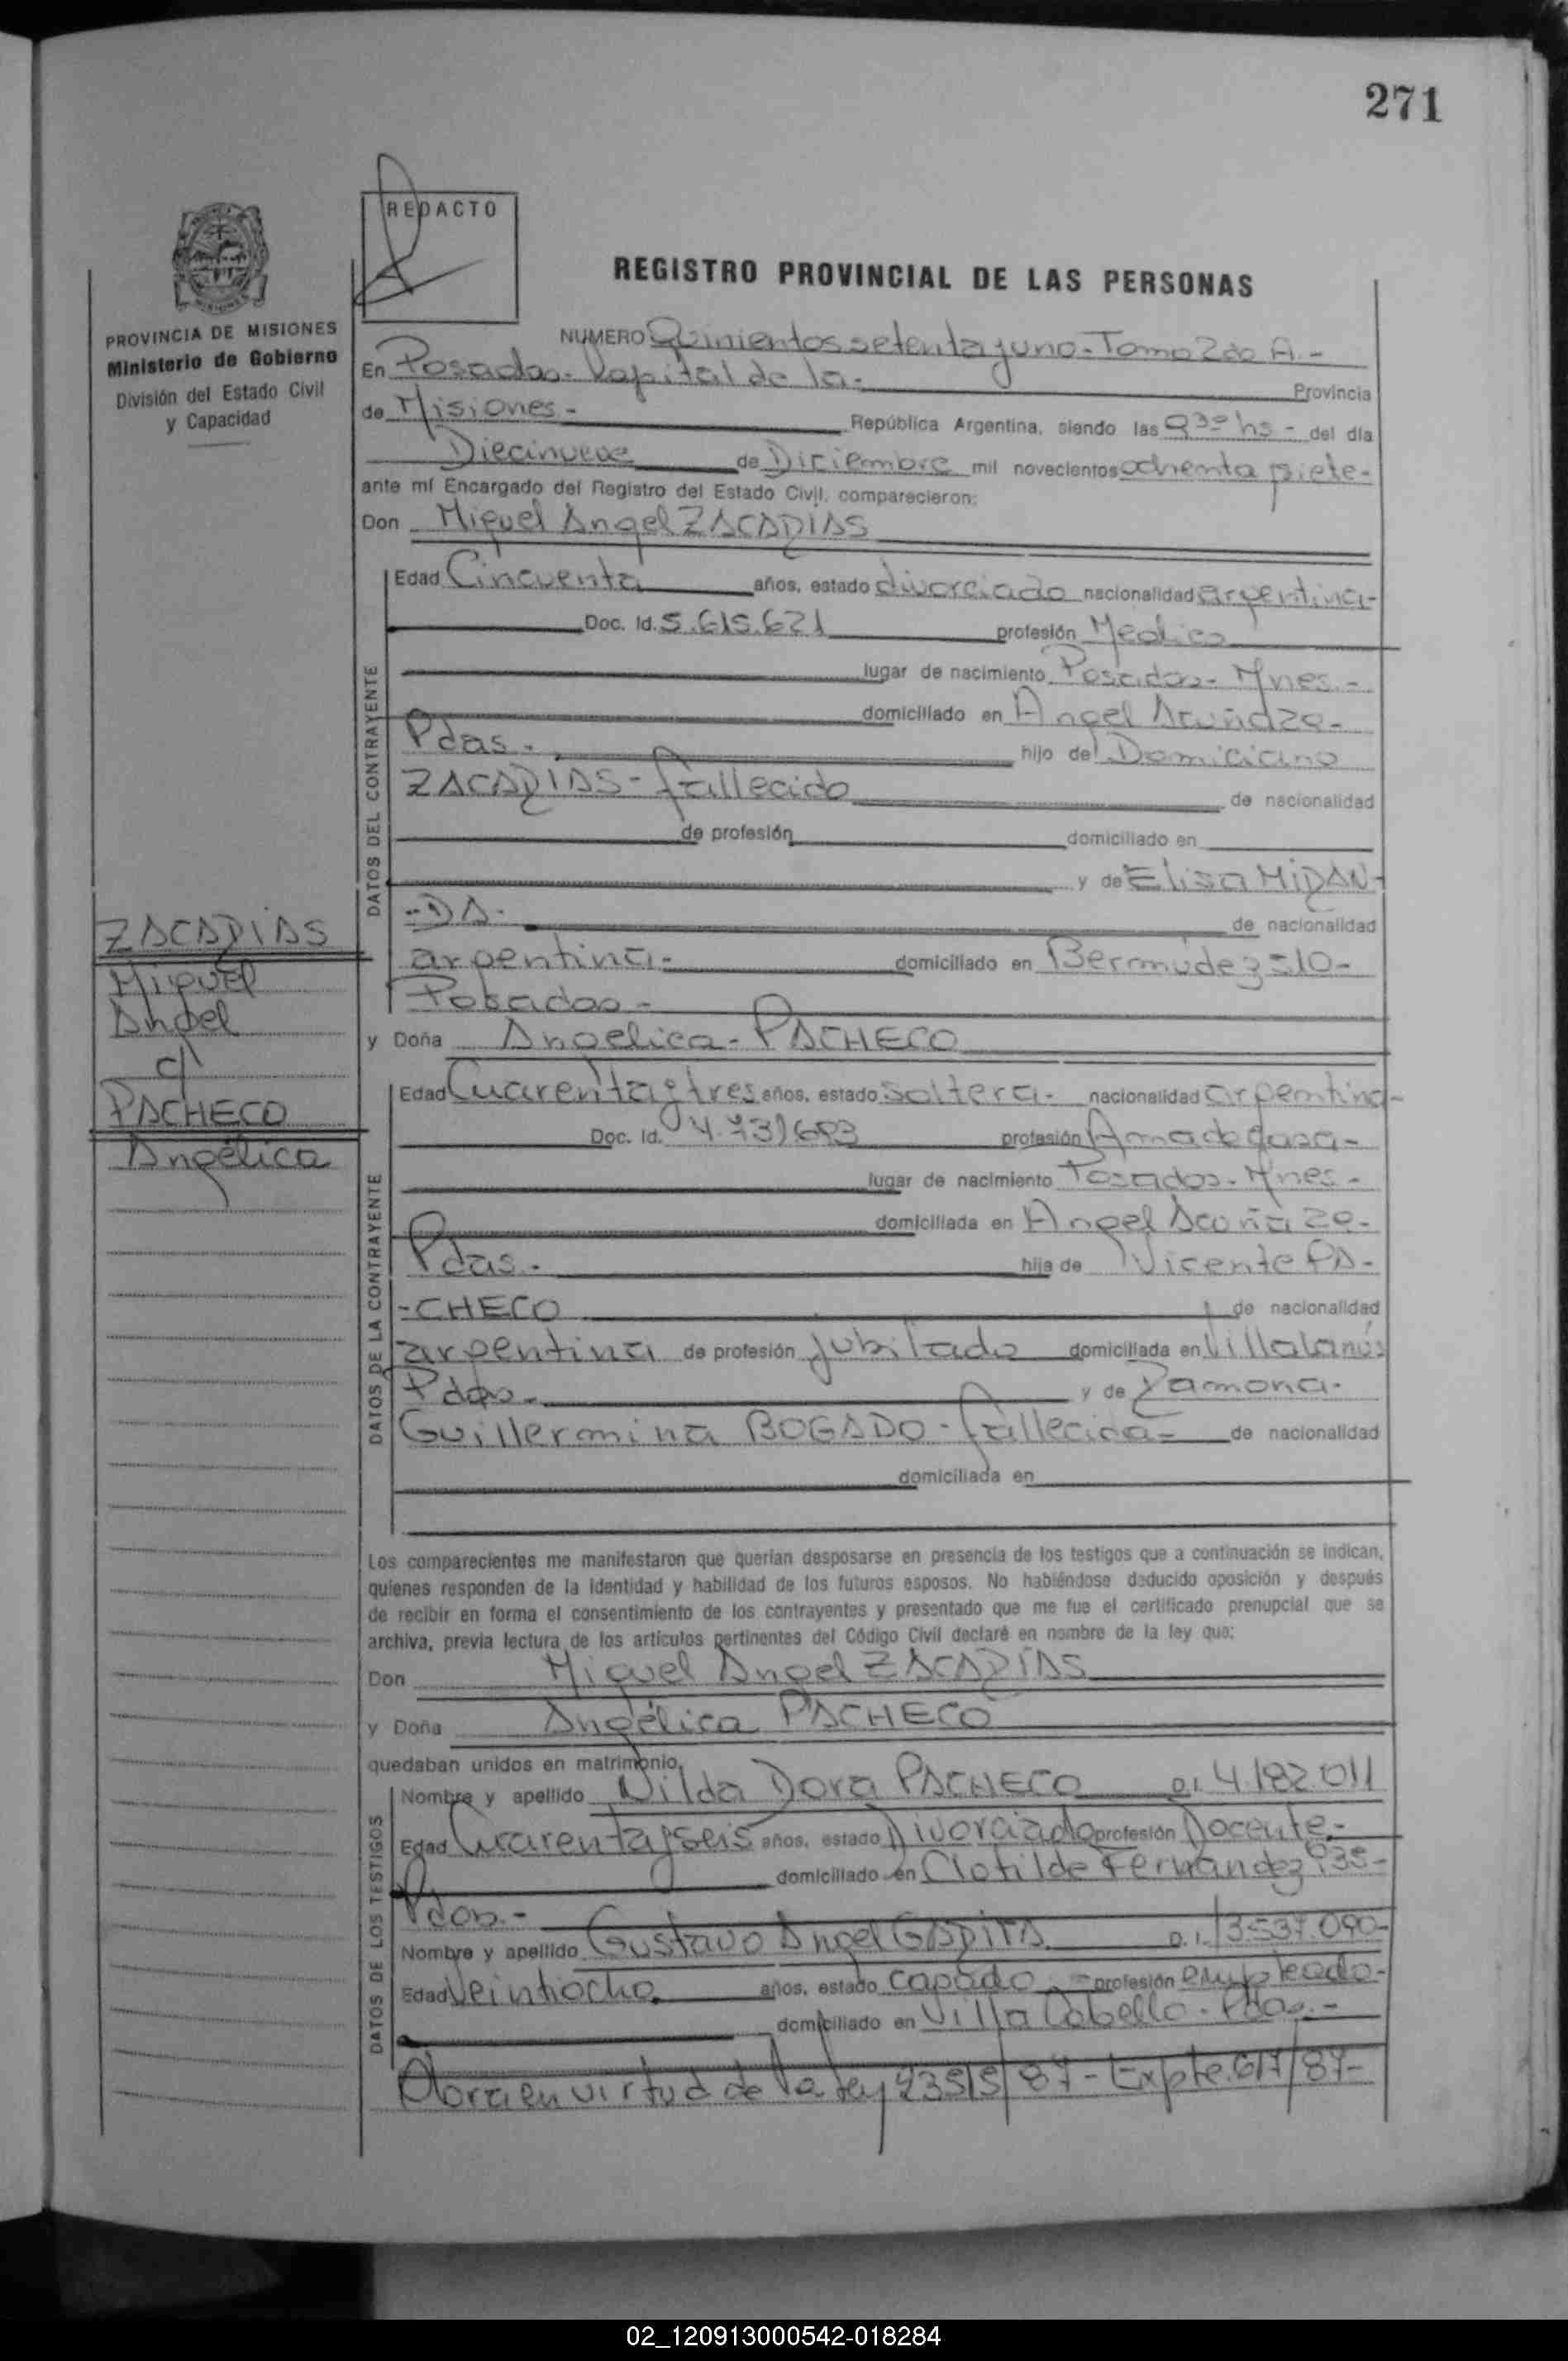 271
REDACTO
REGISTRO PROVINCIAL DE LAS PERSONAS
PROVINCIA DE MISIONES
Ministerio de Gobierno
División del Estado Civil
y Capacidad
NUMERO Quinientos setenta y uno - Tomo 2do A. -
En Posadas - Capital de la - Provincia
de Misiones - República Argentina, siendo las 9 30 hs - del día
Diecinueve de Diciembre mil novecientos ochenta siete -
ante mí Encargado del Registro del Estado Civil, comparecieron:
Don Miguel Angel ZACARIAS
DATOS DEL CONTRAYENTE
Edad Cincuenta años, estado divorciado nacionalidad argentina -
Doc. Id. 5.615.621 profesión Medico
lugar de nacimiento Posadas - Mnes. -
domiciliado en Angel Acuña
Pdas - hijo de Domiciano
ZACARIAS - fallecido de nacionalidad
de profesión domiciliado en
y de Elisa MIRAN-
-DA - de nacionalidad
argentina - domiciliado en Bermudez 510 -
Posadas -
ZACARIAS
Miguel
Angel
c/
PACHECO
Angélica
y Doña Angelica - PACHECO
DATOS DE LA CONTRAYENTE
Edad Cuarenta y tres años, estado soltera - nacionalidad argentina -
Doc. Id. profesión Ama de casa -
lugar de nacimiento Posadas - Mnes -
domiciliada en Angel Acuña
Pdas - hija de Vicente PA-
-CHECO de nacionalidad
argentina de profesión jubilado domiciliada en Villa Lanús
Pdas - y de Ramona -
Guillermina BOGADO - fallecida - de nacionalidad
domiciliada en
Los comparecientes me manifestaron que querían desposarse en presencia de los testigos que a continuación se indican,
quienes responden de la identidad y habilidad de los futuros esposos. No habiéndose deducido oposición y después
de recibir en forma el consentimiento de los contrayentes y presentado que me fue el certificado prenupcial que se
archiva, previa lectura de los artículos pertinentes del Código Civil declaré en nombre de la ley que:
Don Miguel Angel ZACARIAS
y Doña Angélica PACHECO
quedaban unidos en matrimonio.
DATOS DE LOS TESTIGOS
Nombre y apellido Nilda Dora PACHECO D.I. 4.182.011
Edad Cuarenta y seis años, estado Divorciado profesión Docente -
domiciliado en Clotilde Fernandez
Pdas - 
Nombre y apellido Gustavo Angel GARITA D.I. 13.537.090 -
Edad Veintiocho años, estado casado - profesión empleado -
domiciliado en Villa Cabello - Pdas. -
Obra en virtud de la ley 23515/87 - Expte. 617/87 -
02_120913000542-018284